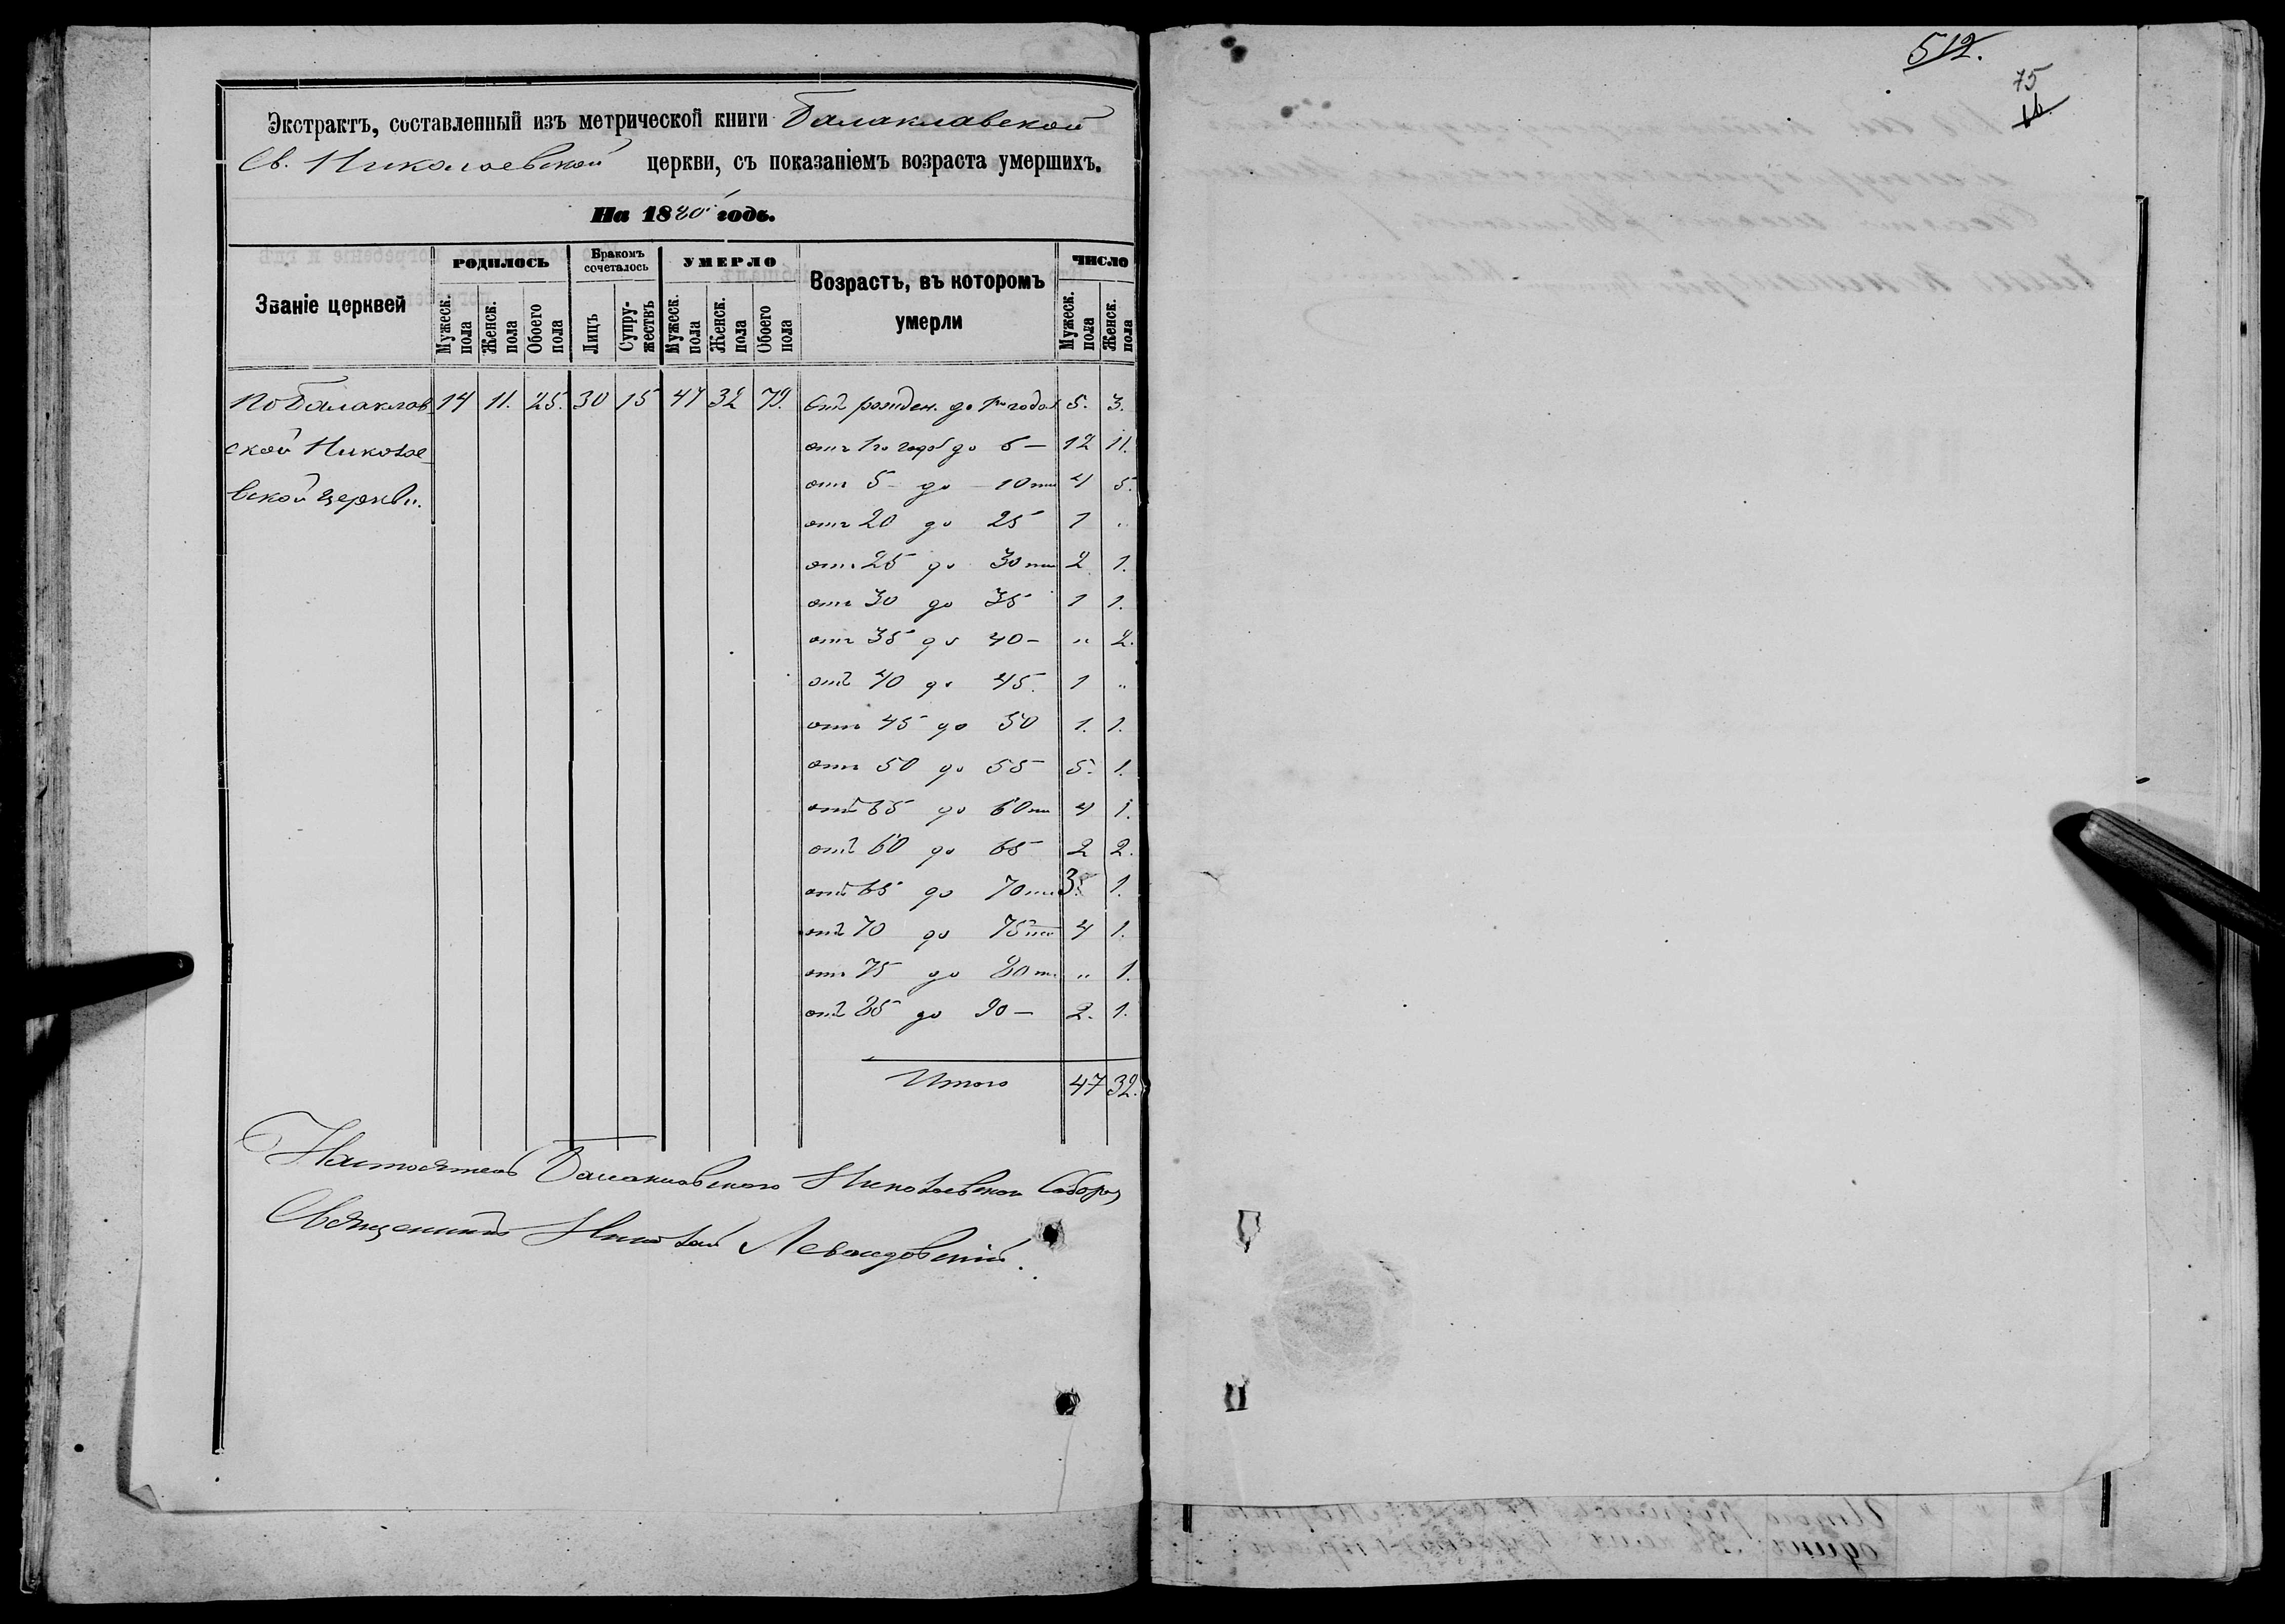 Экстрактъ, составленный изъ метрической книги Балаклавской
Св. Николаевской церкви, съ показаніемъ возраста умершихъ.
На 1880 годъ.
Званіе церквей
РОДИЛОСЬ
Мужеск. пола
Женск. пола
Обоего пола
Бракомъ сочеталось
Лицъ
Супружествъ
УМЕРЛО
Мужеск. пола
Женск. пола
Обоего пола
Возрастъ, въ которомъ умерли
ЧИСЛО
Мужеск. пола
Женск. пола
По Балаклав 14 11. 25. 30 15 47 32 79. Отъ рожден. до 1го года 5. 3.
ской Николае отъ 1го года до 5 — 12 11.
вской церкви. отъ 5 - до - 10ти 4 5.
отъ 20 до 25 1 „
отъ 25 до 30ти 2 1.
отъ 30 до 35 1 1.
отъ 35 до 40 - „ 2.
отъ 40 до 45. 1 „
отъ 45 до 50 1. 1.
отъ 50 до 55 5. 1.
отъ 55 до 60ти 4 1.
отъ 60 до 65 2 2.
отъ 65 до 70ти 3. 1.
отъ 70 до 75ти 4 1.
отъ 75 до 80ти „ 1.
отъ 85 до 90 — 2. 1.
Итого 47 32.
Настоятель Балаклавского Николаевского Собора
Священникъ Николай Левандовскій.
512.
75